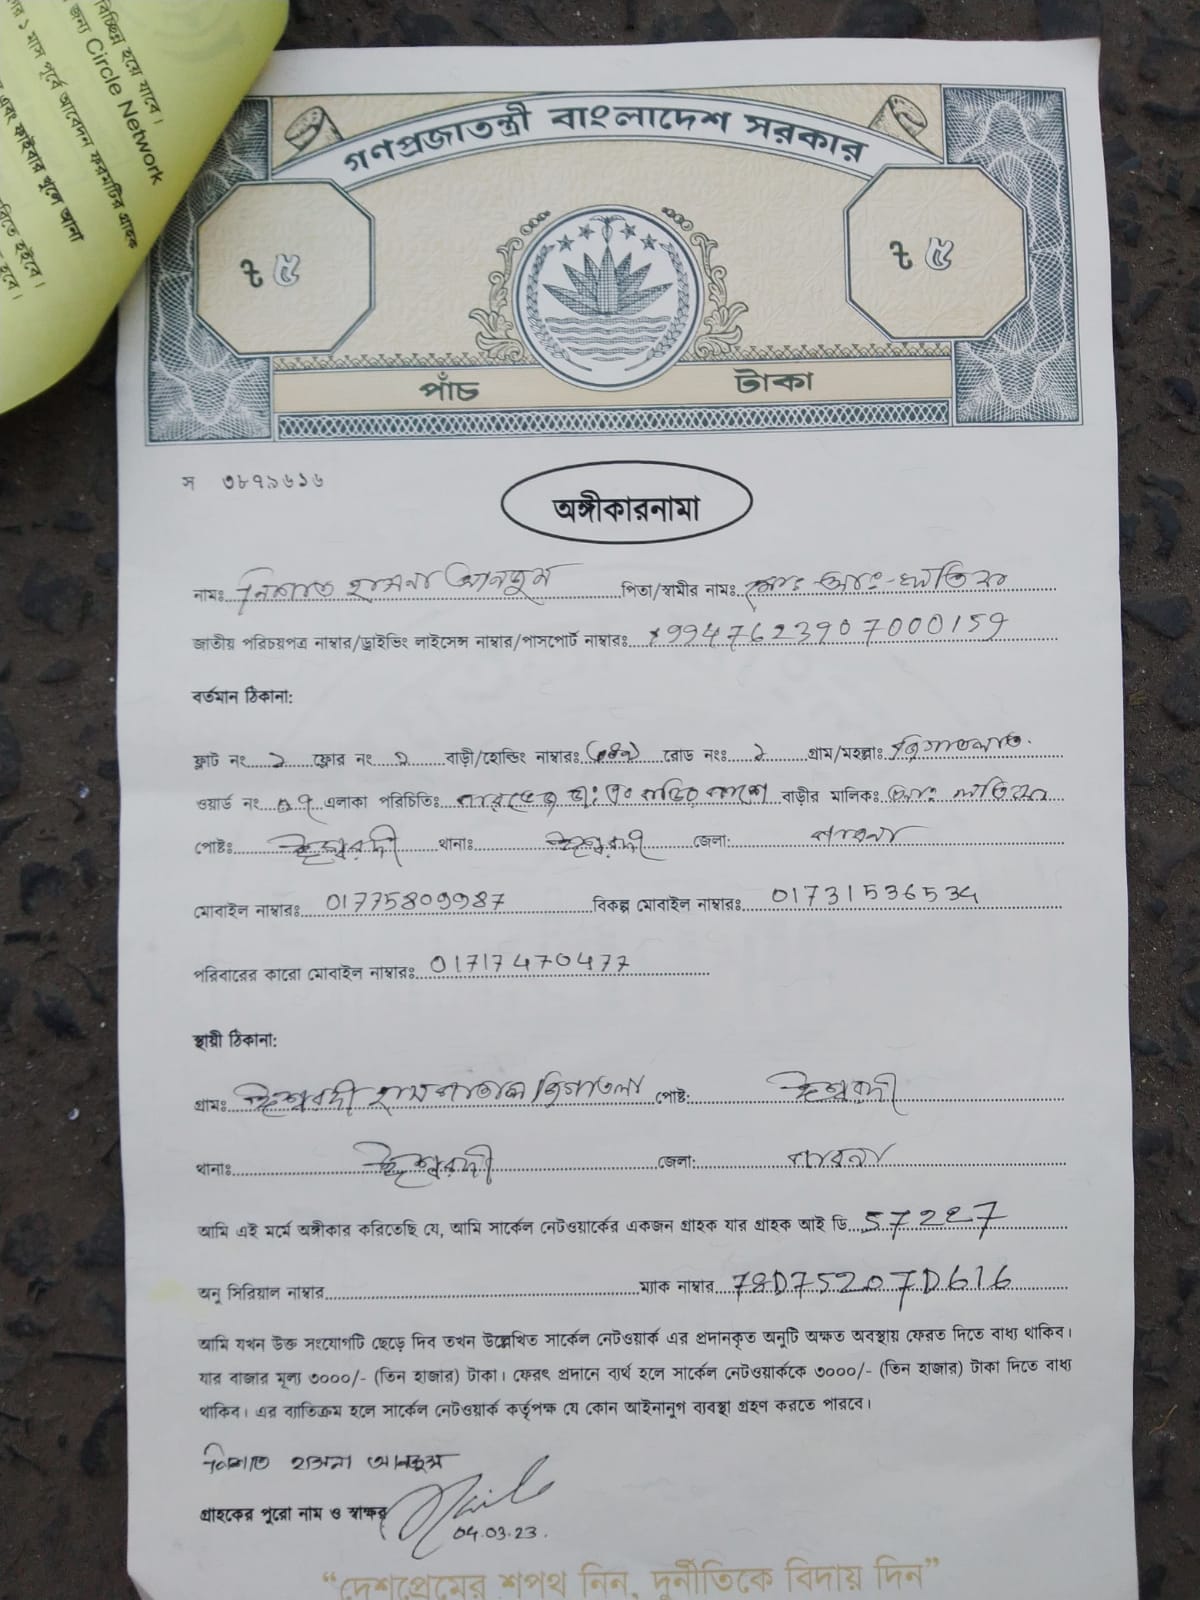 বিচ্ছিন্ন হয়ে যাবে।
জন্য Circle Network
১ মাস পূর্বে আবেদন ফরমটির গ্রাহক
এবং ফাইবার খুলে আনা
হইবে।
হবে।
গণপ্রজাতন্ত্রী বাংলাদেশ সরকার
৳ ৫ ৳ ৫
পাঁচ টাকা
স ৩৮৭৯৬১৬
অঙ্গীকারনামা
নামঃ নিশাত হাসনা আনজুম পিতা/স্বামীর নামঃ মোঃ আঃ লতিফ
জাতীয় পরিচয়পত্র নাম্বার/ড্রাইভিং লাইসেন্স নাম্বার/পাসপোর্ট নাম্বারঃ 19947623907000159
বর্তমান ঠিকানা:
ফ্লাট নং ১ ফ্লোর নং ২ বাড়ী/হোল্ডিং নাম্বারঃ রোড নংঃ ১ গ্রাম/মহল্লাঃ
ওয়ার্ড নং ০৭ এলাকা পরিচিতিঃ বাড়ীর মালিকঃ আঃ লতিফ
পোষ্টঃ ঈশ্বরদী থানাঃ ঈশ্বরদী জেলা: পাবনা
মোবাইল নাম্বারঃ 01775809987 বিকল্প মোবাইল নাম্বারঃ 01731536534
পরিবারের কারো মোবাইল নাম্বারঃ 01717470477
স্থায়ী ঠিকানা:
গ্রামঃ ঈশ্বরদী হাসপাতাল পোষ্ট: ঈশ্বরদী
থানাঃ ঈশ্বরদী জেলা: পাবনা
আমি এই মর্মে অঙ্গীকার করিতেছি যে, আমি সার্কেল নেটওয়ার্কের একজন গ্রাহক যার গ্রাহক আই ডি 57227
অনু সিরিয়াল নাম্বার ম্যাক নাম্বার 78D75207D616
আমি যখন উক্ত সংযোগটি ছেড়ে দিব তখন উল্লেখিত সার্কেল নেটওয়ার্ক এর প্রদানকৃত অনুটি অক্ষত অবস্থায় ফেরত দিতে বাধ্য থাকিব।
যার বাজার মূল্য ৩০০০/- (তিন হাজার) টাকা। ফেরৎ প্রদানে ব্যর্থ হলে সার্কেল নেটওয়ার্ককে ৩০০০/- (তিন হাজার) টাকা দিতে বাধ্য
থাকিব। এর ব্যতিক্রম হলে সার্কেল নেটওয়ার্ক কর্তৃপক্ষ যে কোন আইনানুগ ব্যবস্থা গ্রহণ করতে পারবে।
নিশাত হাসনা আনজুম
গ্রাহকের পুরো নাম ও স্বাক্ষর
04.03.23.
“দেশপ্রেমের শপথ নিন, দুর্নীতিকে বিদায় দিন”